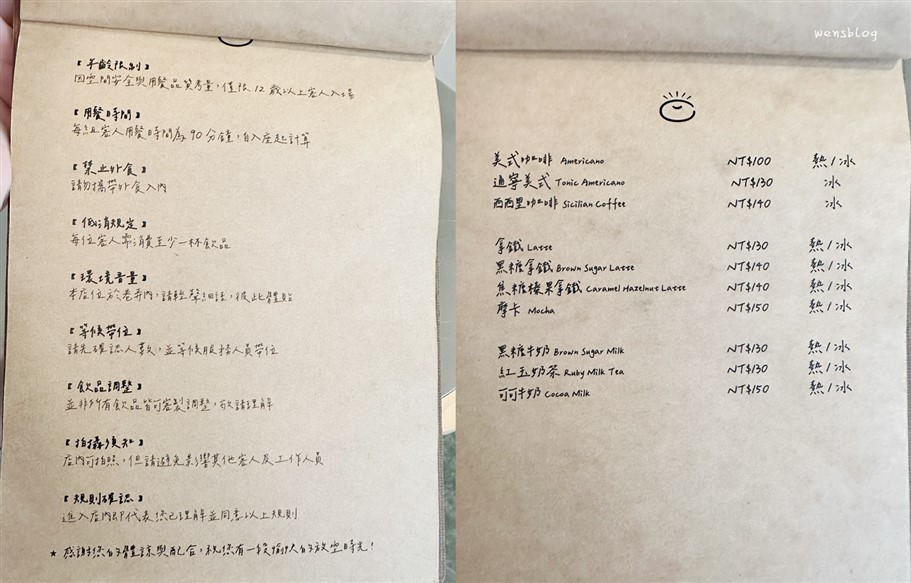 【年齡限制】
因空間安全與用餐品質考量，僅限12歲以上客人入場
【用餐時間】
每組客人用餐時間為90分鐘，自入座起計算
【禁止外食】
請勿攜帶外食入內
【低消規定】
每位客人需消費至少一杯飲品
【環境音量】
本店位於巷弄內，請輕聲細語，彼此體貼
【等候帶位】
請先確認人數，並等候服務人員帶位
【飲品調整】
並非所有飲品皆可客製調整，敬請理解
【拍攝須知】
店內可拍照，但請避免影響其他客人及工作人員
【規則確認】
進入店內即代表您已理解並同意以上規則
★ 感謝您的體諒與配合，祝您有一段愉快的放空時光！
wensblog
美式咖啡 Americano NT$100 熱/冰
通寧美式 Tonic Americano NT$130 冰
西西里咖啡 Sicilian Coffee NT$140 冰
拿鐵 Latte NT$130 熱/冰
黑糖拿鐵 Brown Sugar Latte NT$140 熱/冰
焦糖榛果拿鐵 Caramel Hazelnut Latte NT$140 熱/冰
摩卡 Mocha NT$150 熱/冰
黑糖牛奶 Brown Sugar Milk NT$130 熱/冰
紅玉奶茶 Ruby Milk Tea NT$130 熱/冰
可可牛奶 Cocoa Milk NT$150 熱/冰